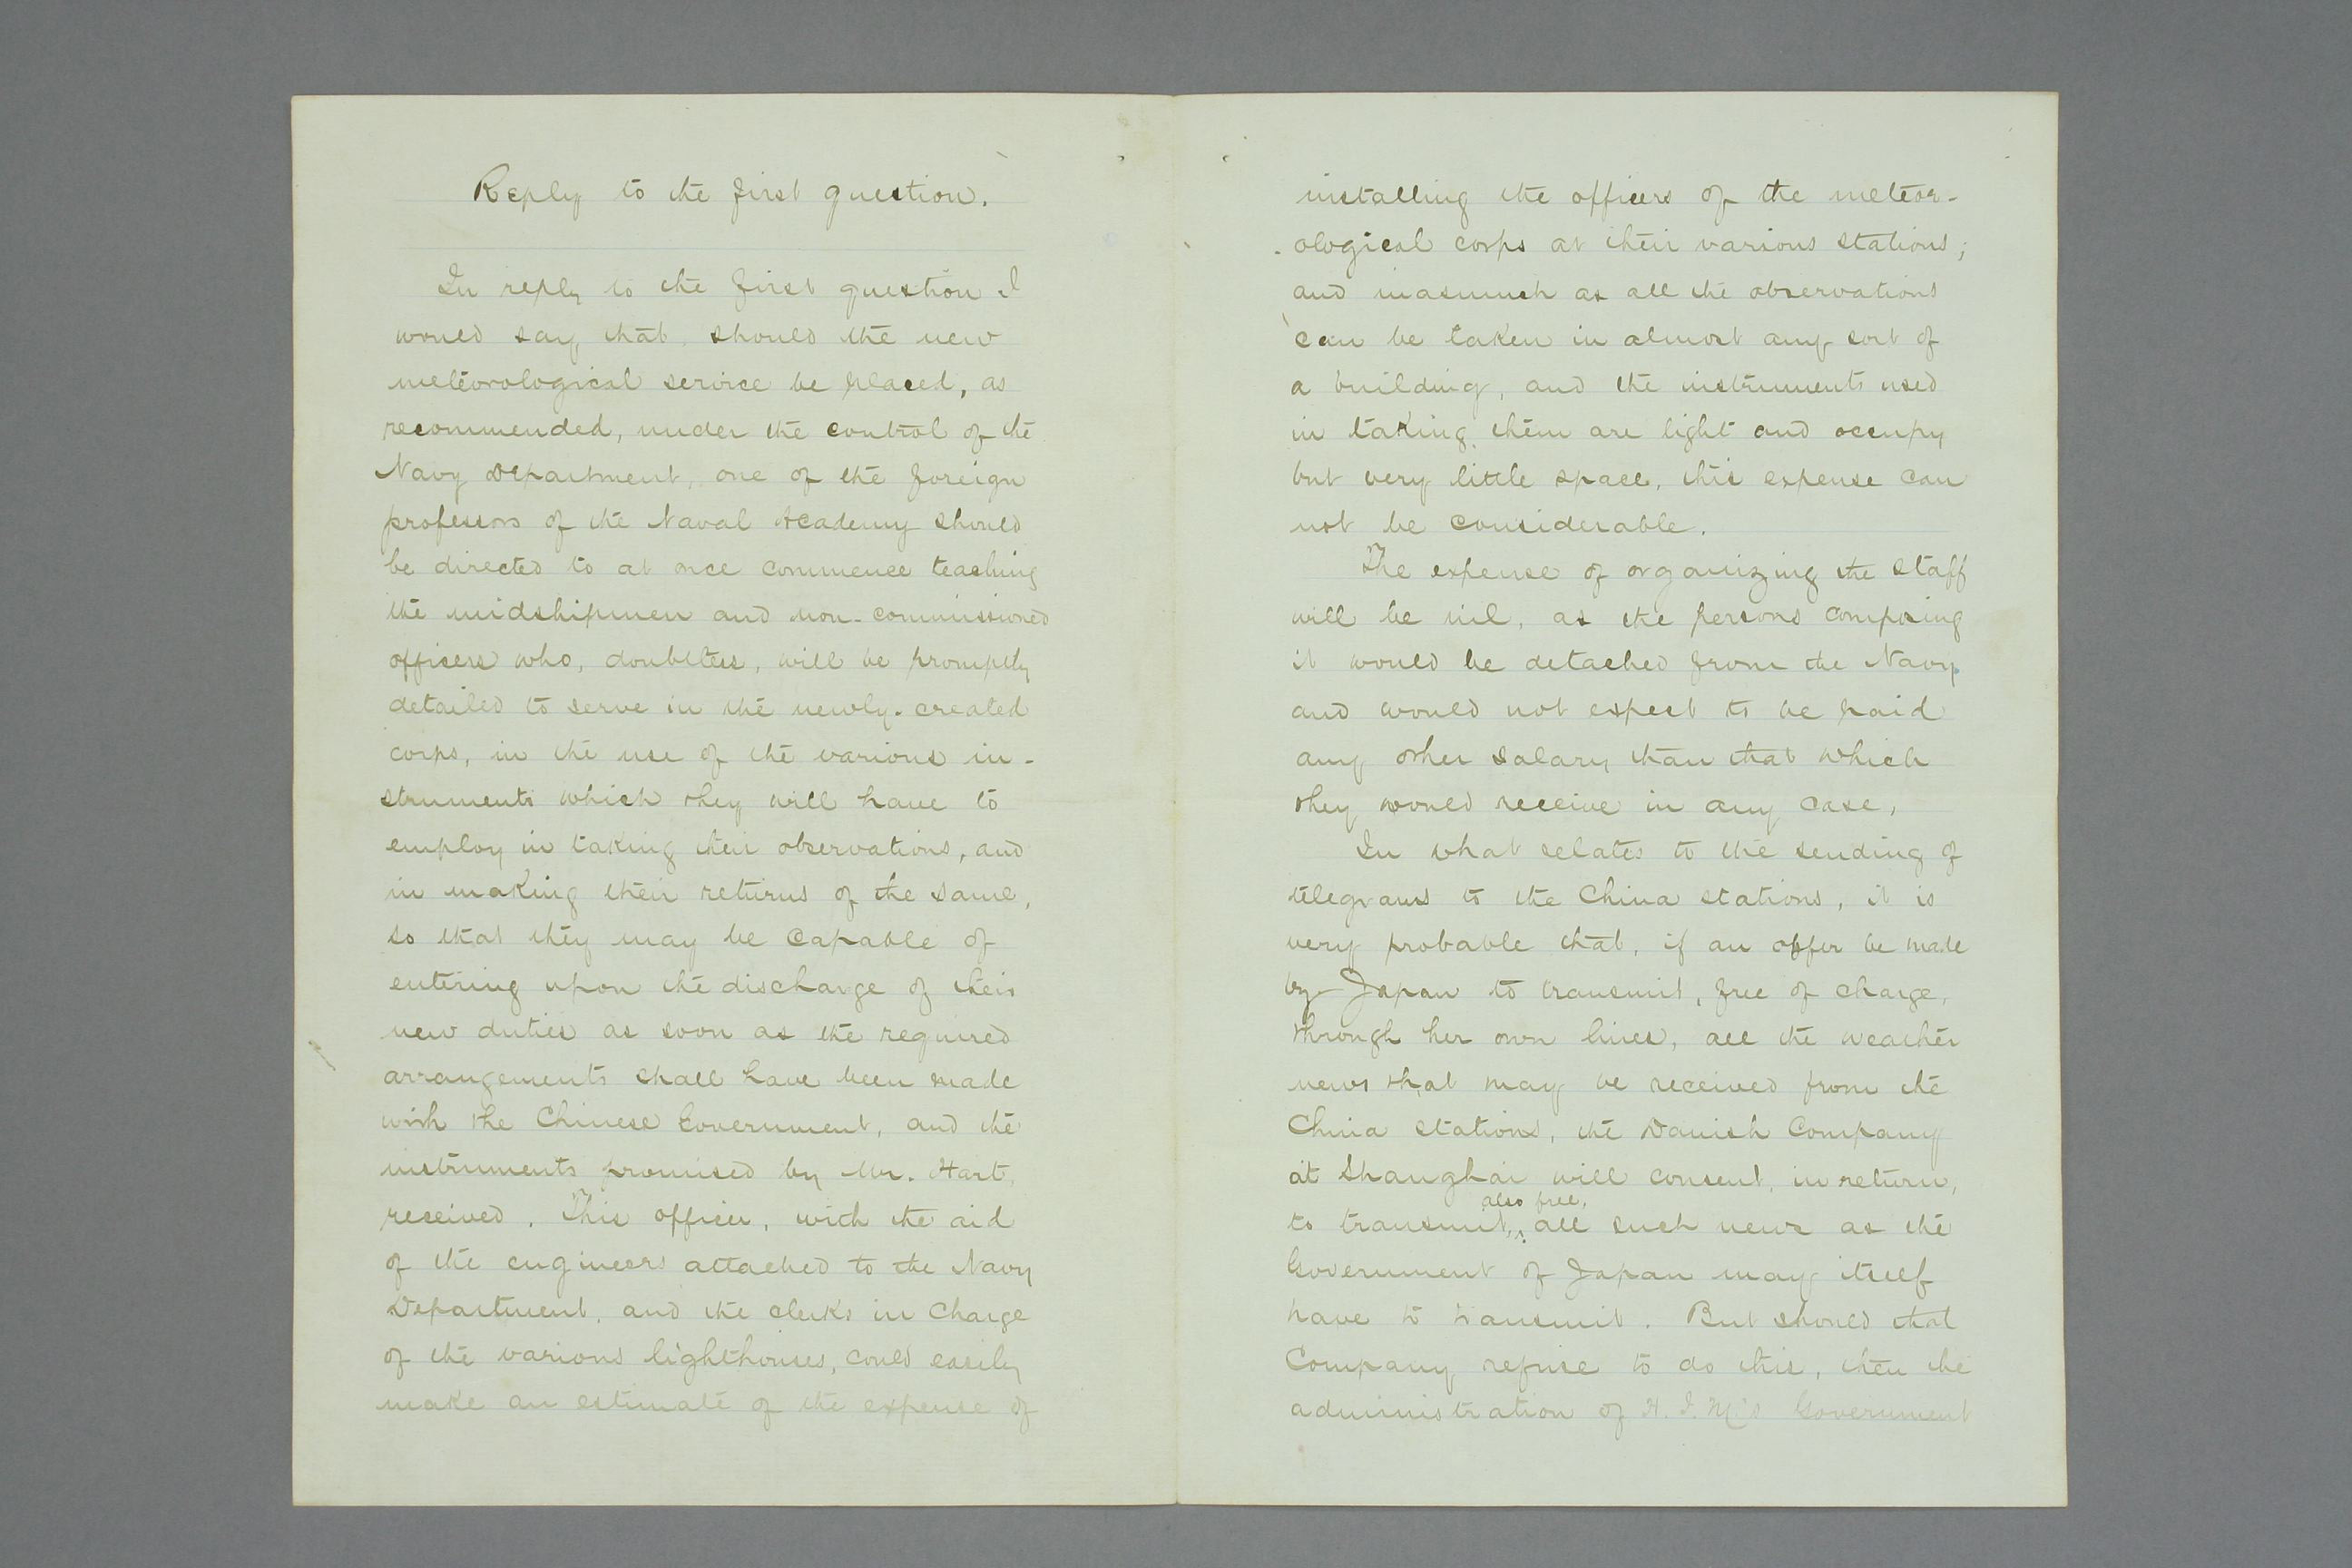 Reply to the first question.
In reply to the first question I
would say that should the new
meteorological service be placed, as
recommended, under the control of the
Navy Department, one of the foreign
professors of the Naval Academy should
be directed to at once commence teaching
the midshipmen and non-commissioned
officers who, doubtless, will be promptly
detailed to serve in the newly-created
corps, in the use of the various in-
struments which they will have to
employ in taking their observations, and
in making their returns of the same,
so that they may be capable of
entering upon the discharge of their
new duties as soon as the required
arrangements shall have been made
with the Chinese Government, and the
instruments promised by Mr. Hart,
received. This officer, with the aid
of the engineers attached to the Navy
Department, and the clerks in charge
of the various lighthouses, could easily
make an estimate of the expense of
installing the officers of the meteor-
ological corps at their various stations;
and inasmuch as all the observations
can be taken in almost any sort of
a building, and the instruments used
in taking them are light and occupy
but very little space, this expense can
not be considerable.
The expense of organizing the staff
will be nil, as the persons composing
it would be detached from the Navy
and would not expect to be paid
any other salary than that which
they would receive in any case.
In what relates to the sending of
telegrams to the China stations, it is
very probable that, if an offer be made
by Japan to transmit, free of charge,
through her own lines, all the weather
news that may be received from the
China stations, the Danish Company
at Shanghai will consent, in return,
also free,
to transmit, all such news as the
Government of Japan may itself
have to transmit. But should that
Company refuse to do this, then the
administration of H. I. M's Government